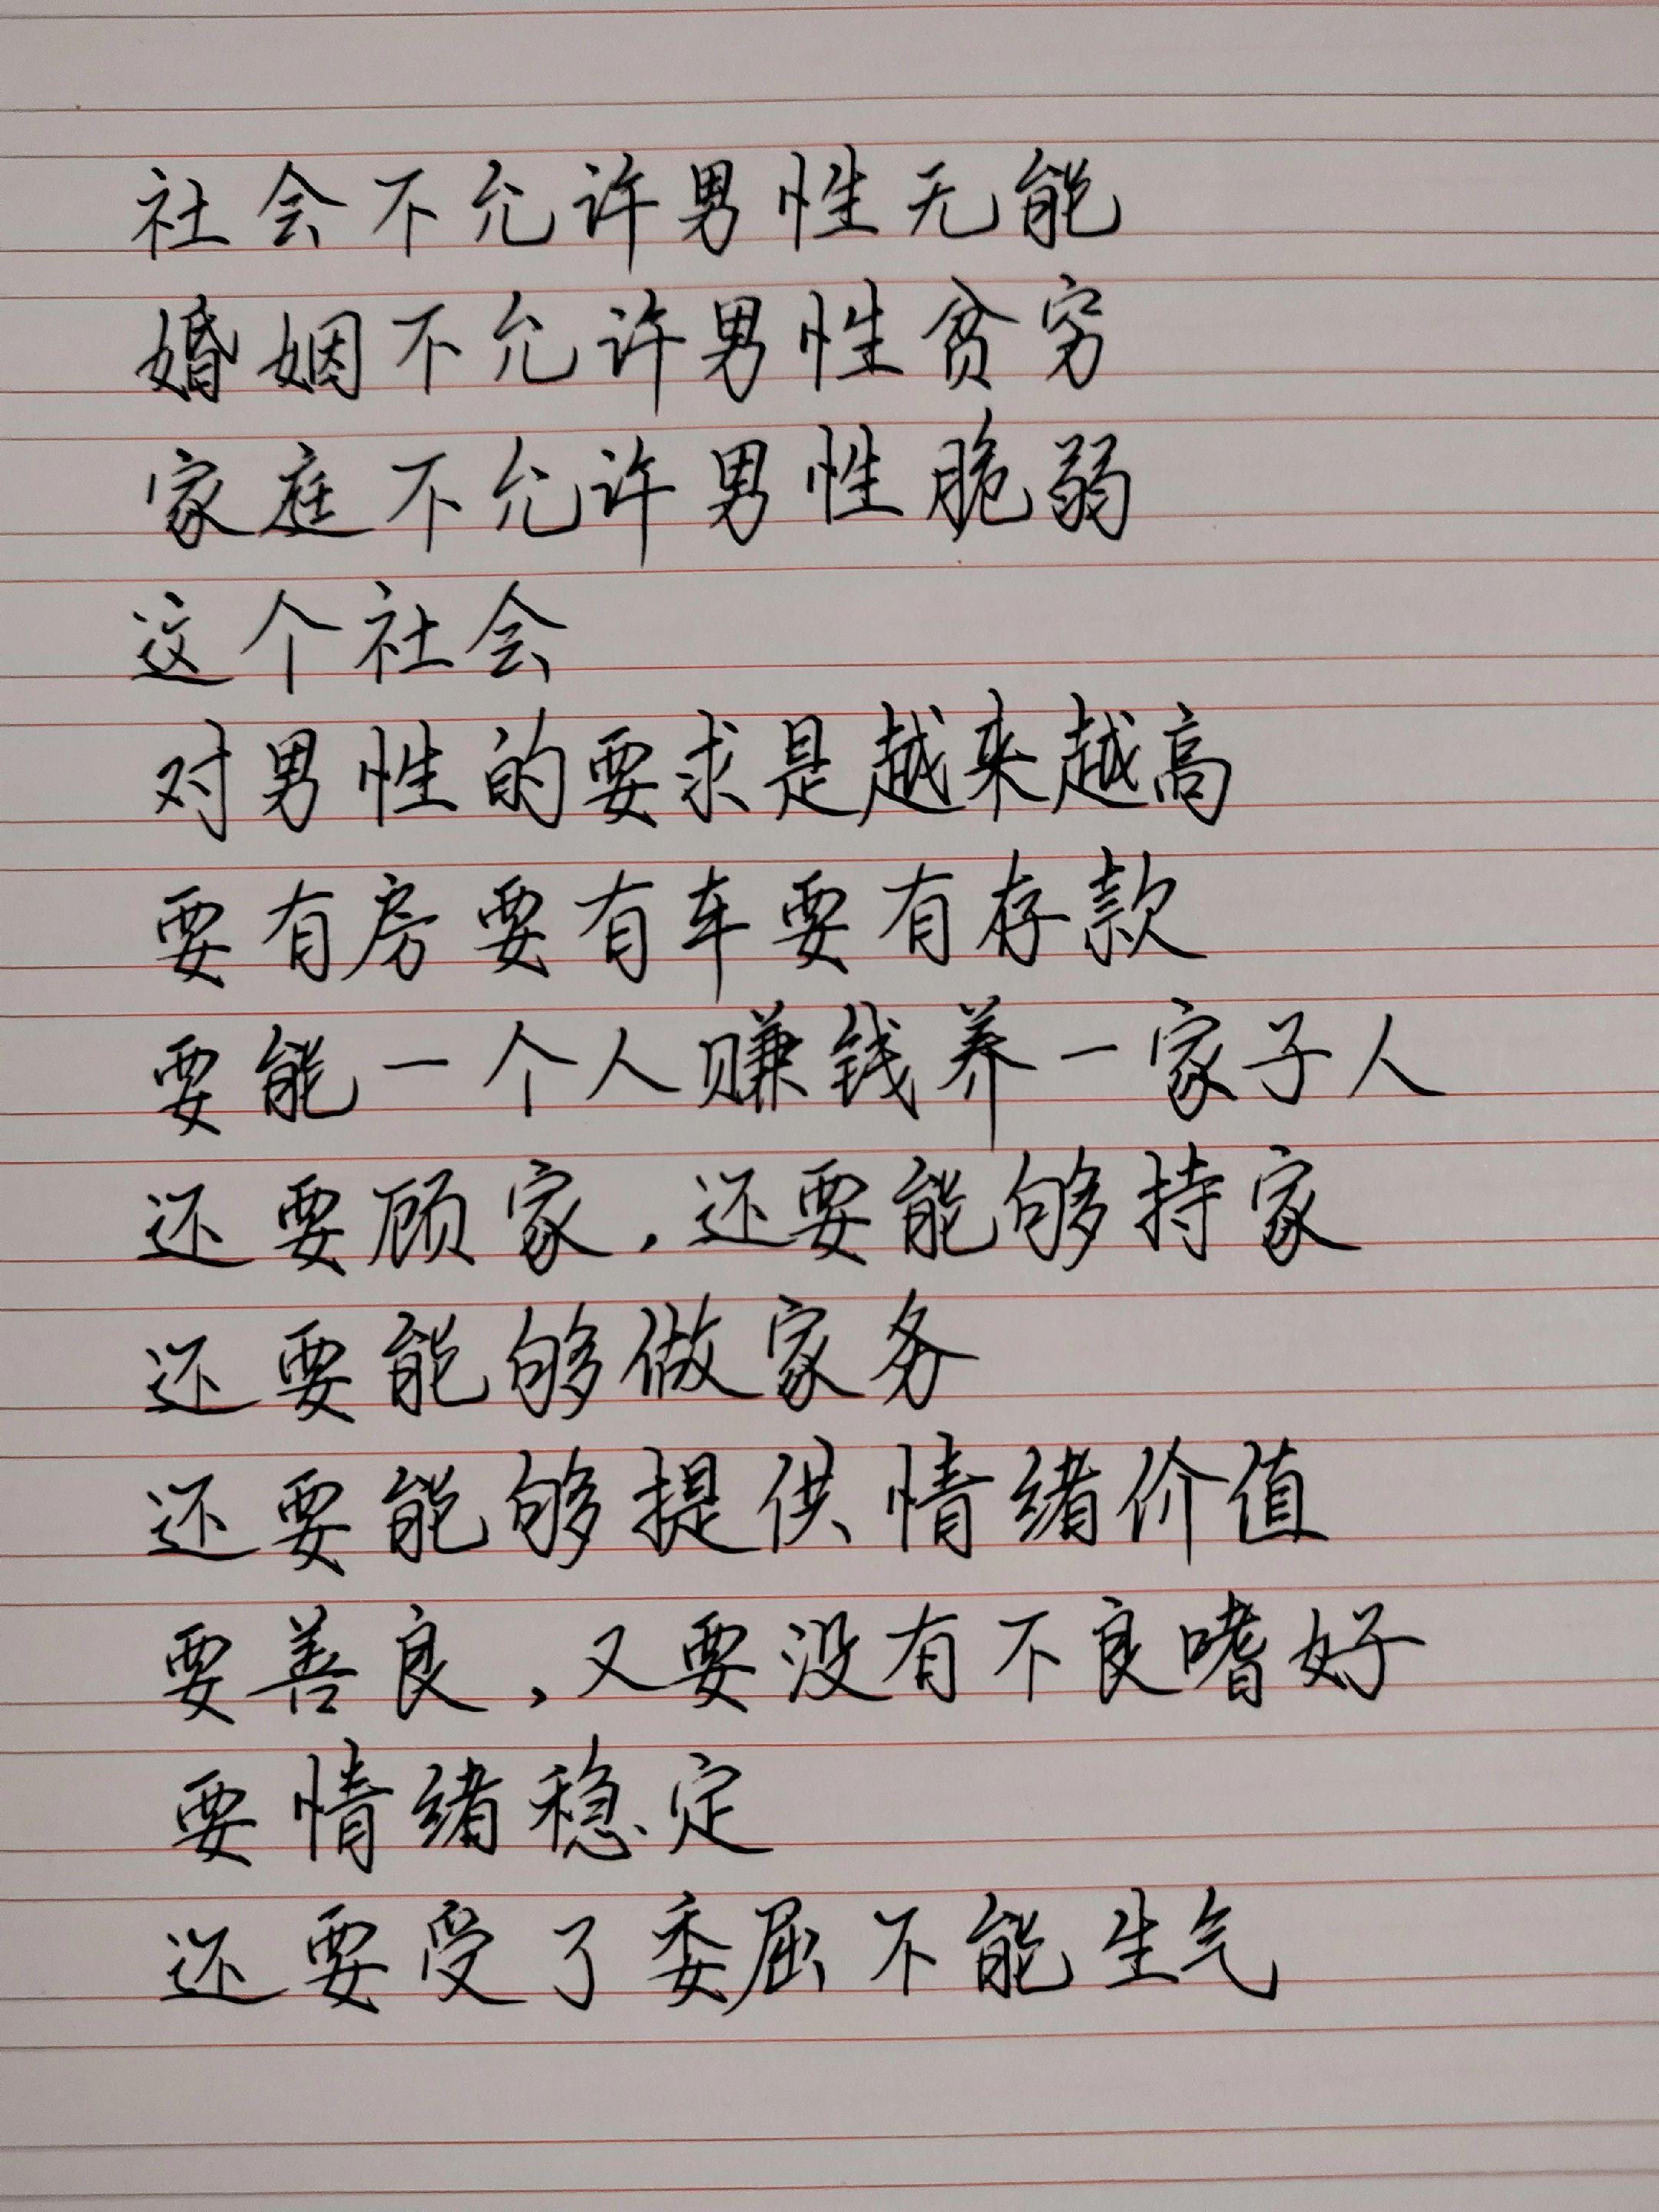 社会不允许男性无能
婚姻不允许男性贫穷
家庭不允许男性脆弱
这个社会
对男性的要求是越来越高
要有房要有车要有存款
要能一个人赚钱养一家子人
还要顾家,还要能够持家
还要能够做家务
还要能够提供情绪价值
要善良,又要没有不良嗜好
要情绪稳定
还要受了委屈不能生气